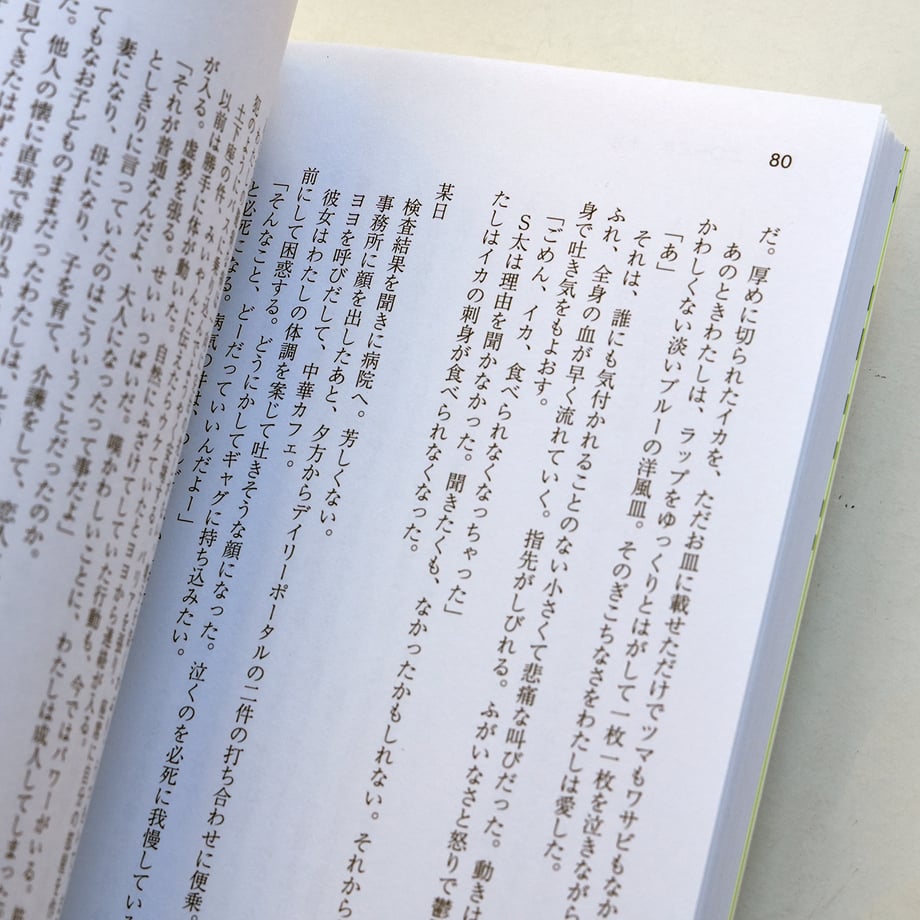 80
だ。厚めに切られたイカを、ただお皿に載せただけでツマもワサビもなか
あのときわたしは、ラップをゆっくりとはがして一枚一枚を泣きながら
かわしくない淡いブルーの洋風皿。そのぎこちなさをわたしは愛した。
「あ」
それは、誰にも気付かれることのない小さくて悲痛な叫びだった。動きは
ふれ、全身の血が早く流れていく。指先がしびれる。ふがいなさと怒りで鬱
身で吐き気をもよおす。
「ごめん、イカ、食べられなくなっちゃった」
S太は理由を聞かなかった。聞きたくも、なかったかもしれない。それから
たしはイカの刺身が食べられなくなった。
某日
検査結果を聞きに病院へ。芳しくない。
事務所に顔を出したあと、夕方からデイリーポータルの二件の打ち合わせに便乗。
ヨヨを呼びだして、中華カフェ。
彼女はわたしの体調を案じて吐きそうな顔になった。泣くのを必死に我慢している
前にして困惑する。どうにかしてギャグに持ち込みたい。
「そんなこと、どーだっていいんだよー」
と必死になる。病気の
土下座の件、みいやんに伝えたらウケ
以前は勝手に体が動いた。自然にふざけていた
が入る。虚勢を張る。せいいっぱいだ。嘆かわしいことに、
「それが普通なんだよ、大人になったって事だよ」
としきりに言っていたのはこういうことだったのか。
妻になり、母になり、子を育て、介護をして、
てもなお子どものままだったわたしは、
た。他人の懐に直球で潜り込
見てきたはずが